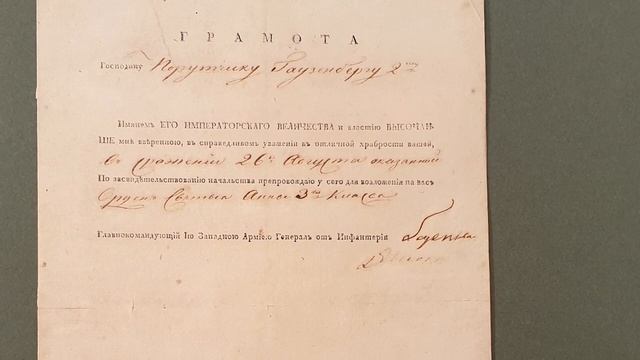 ГРАМОТА
Господину Порутчику Гаузенбергу 2му
Именемъ ЕГО ИМПЕРАТОРСКАГО ВЕЛИЧЕСТВА и властію ВЫСОЧАЙ-
ШЕ мнѣ ввѣренною, въ справедливомъ уваженіи къ отличной храбрости вашей,
въ сраженіи 26го Августа оказанной
По засвидѣтельствованію начальства препровождаю у сего для возложенія на васъ
Орденъ Святыя Анны 3го Класса
Главнокомандующій Iю Западною Арміею Генералъ отъ Инфантеріи